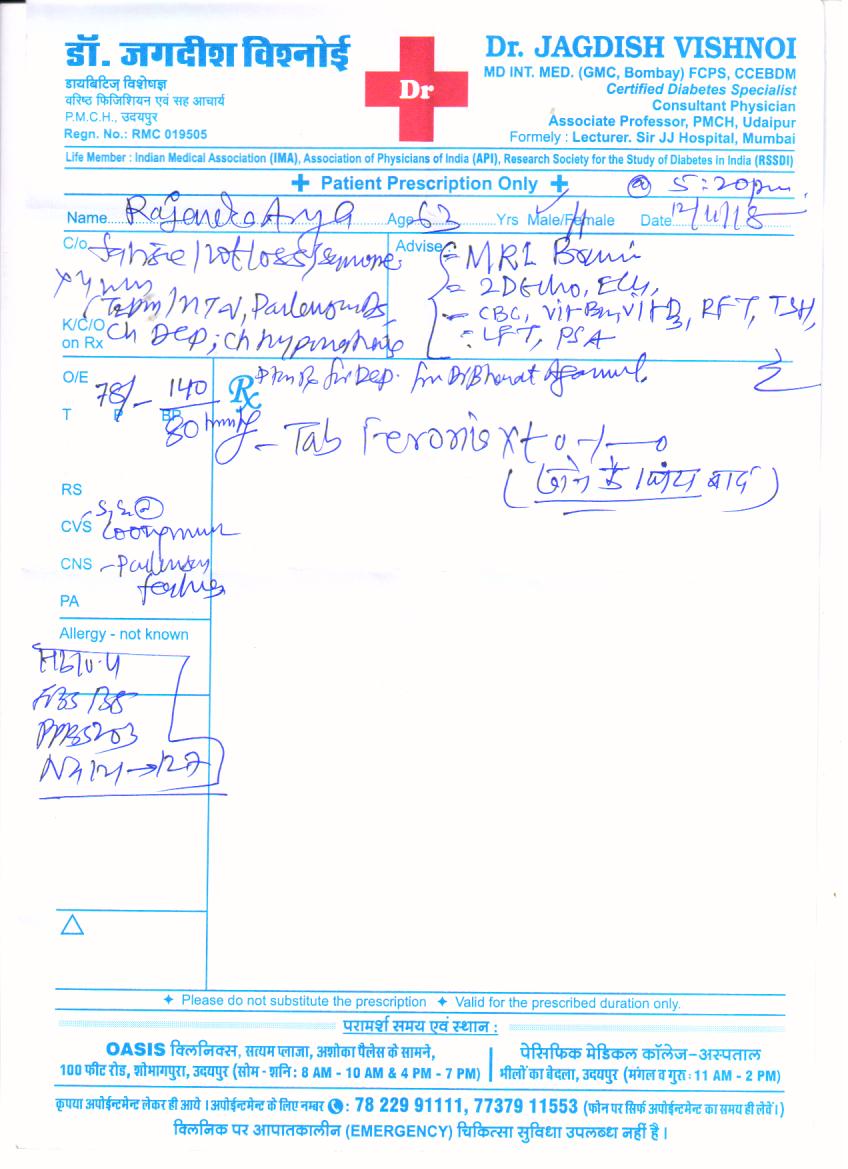 डॉ. जगदीश विश्नोई
डायबिटिज् विशेषज्ञ
वरिष्ठ फिजिशियन एवं सह आचार्य
P.M.C.H., उदयपुर
Regn. No.: RMC 019505
Dr
Dr. JAGDISH VISHNOI
MD INT. MED. (GMC, Bombay) FCPS, CCEBDM
Certified Diabetes Specialist
Consultant Physician
Associate Professor, PMCH, Udaipur
Formely : Lecturer. Sir JJ Hospital, Mumbai
Life Member : Indian Medical Association (IMA), Association of Physicians of India (API), Research Society for the Study of Diabetes in India (RSSDI)
Patient Prescription Only @ 5:20pm
Name Rajendra Arya Age 63 Yrs Male/Female Date 12/11/18
C/o
Advise MRI Brain
2D Echo, ECG,
CBC, Vit B12, Vit D3, RFT, TSH,
LFT, PSA
K/C/O
on Rx
Ch Dep; Ch hyponatremia
O/E
T P 78/- BP 140
80 mmHg
Rx for Dep. Dr Bharat
Tab
बाद
RS
CVS
CNS
PA
Allergy - not known
FBS 138
PPBS 203
→ 127
Please do not substitute the prescription Valid for the prescribed duration only.
परामर्श समय एवं स्थान :
OASIS क्लिनिक्स, सत्यम प्लाजा, अशोका पैलेस के सामने,
100 फीट रोड, शोभागपुरा, उदयपुर (सोम - शनि : 8 AM - 10 AM & 4 PM - 7 PM)
पेसिफिक मेडिकल कॉलेज-अस्पताल
भीलों का बेदला, उदयपुर (मंगल व गुरु : 11 AM - 2 PM)
कृपया अपोईन्टमेन्ट लेकर ही आये । अपोईन्टमेन्ट के लिए नम्बर : 78 229 91111, 77379 11553 (फोन पर सिर्फ अपोईन्टमेन्ट का समय ही लेवें।)
क्लिनिक पर आपातकालीन (EMERGENCY) चिकित्सा सुविधा उपलब्ध नहीं है ।